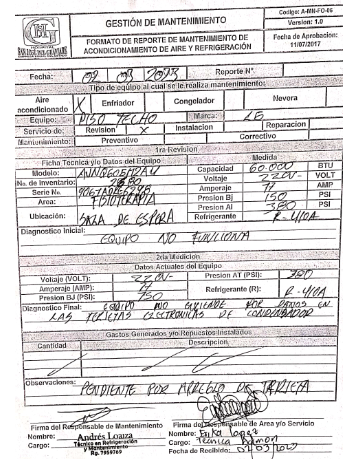 GESTIÓN DE MANTENIMIENTO
Código: A-MN-FO-06
Version: 1.0
FORMATO DE REPORTE DE MANTENIMIENTO DE ACONDICIONAMIENTO DE AIRE Y REFRIGERACIÓN
Fecha de Aprobacion: 11/07/2017
Fecha: 02 03 2023 Reporte N°.
Tipo de equipo al cual se le realiza mantenimiento:
Aire acondicionado X Enfriador Congelador Nevera
Equipo: PISO TECHO Marca: LG
Servicio de: Revision X Instalacion Reparacion
Mantenimiento: Preventivo Correctivo
1ra Revision
Ficha Tecnica y/o Datos del Equipo Medida
Modelo: Capacidad 60.000 BTU
No. de Inventario: Voltaje 220V- VOLT
Serie No. Amperaje 11 AMP
Area: FISIOTERAPIA Presion Bj 150 PSI
Presion Al 380 PSI
Ubicación: SALA DE ESPERA Refrigerante R-410A
Diagnostico Inicial:
EQUIPO NO FUNCIONA
2da Medicion
Datos Actuales del Equipo
Voltaje (VOLT): 220V- Presion AT (PSI): 380
Amperaje (AMP): 11 Refrigerante (R): R-410A
Presion BJ (PSI): 150
Diagnostico Final: EQUIPO NO ENCIENDE POR DAÑOS EN
LAS TARJETAS ELECTRONICAS DE CONDENSADOR
Gastos Generados y/o Repuestos Instalados
Cantidad Descripcion
Observaciones:
PENDIENTE POR ARREGLO DE TARJETA
Firma del Responsable de Mantenimiento
Nombre: Andrés Loaiza
Cargo: Técnico en Refrigeración y Mantenimiento
Rg. 7954769
Firma del Responsable de Area y/o Servicio
Nombre: Erika Lopez
Cargo: Tecnica
Fecha de Recibido: